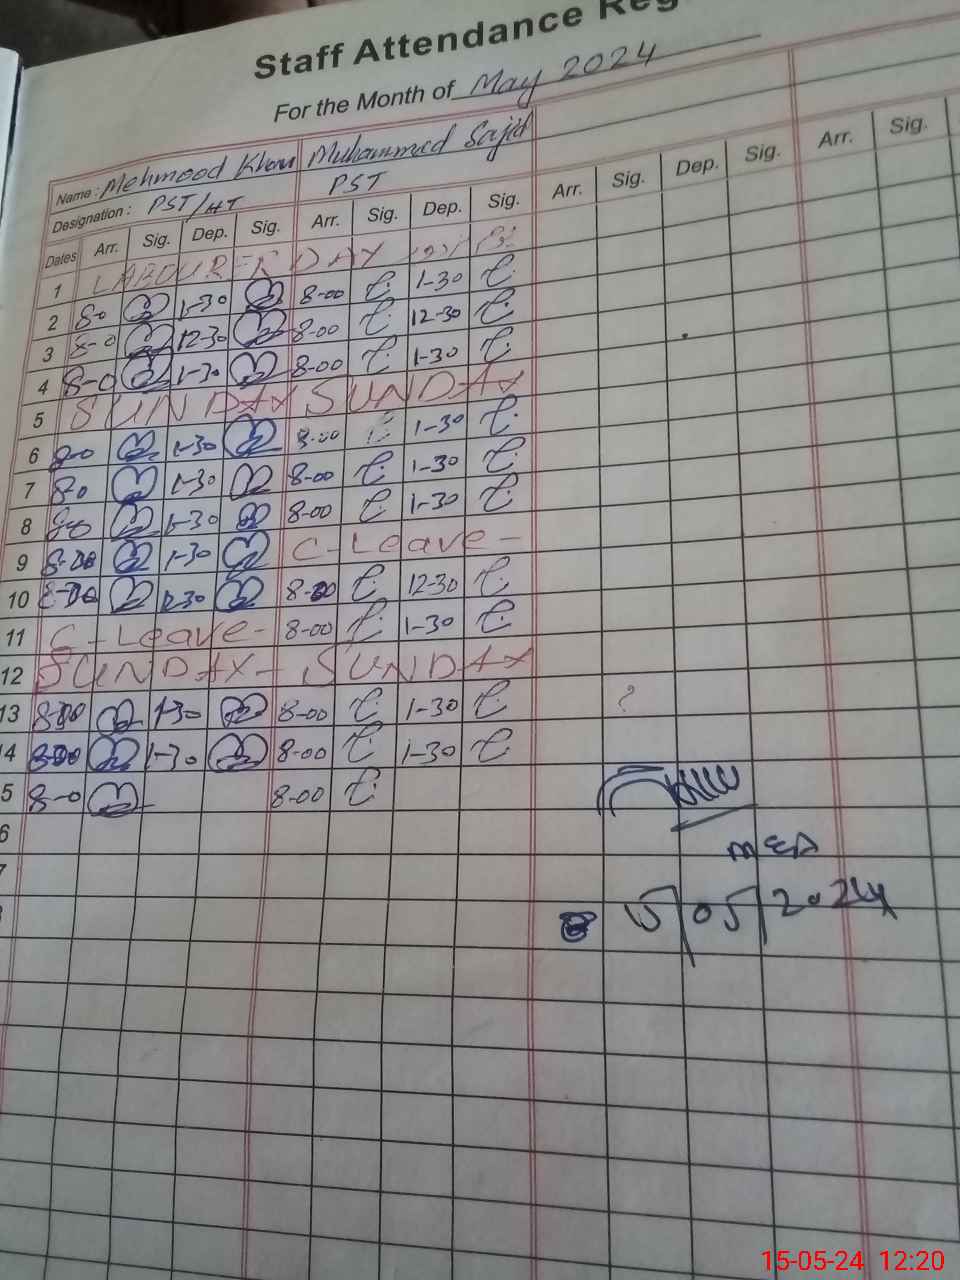 Staff Attendance Reg
For the Month of May 2024
Name: Mehmood Khan Muhammad Sajid
Designation: PST/HT PST
Dates Arr. Sig. Dep. Sig. Arr. Sig. Dep. Sig. Arr. Sig. Dep. Sig. Arr. Sig.
1 LABOURER DAY
2 8-0 1-30 8-00 1-30
3 8-0 12-30 8-00 12-30
4 8-0 1-30 8-00 1-30
5 SUNDAY SUNDAY
6 8-0 1-30 8-00 1-30
7 8-0 1-30 8-00 1-30
8 8-0 1-30 8-00 1-30
9 1-30 C-Leave-
10 8-00 12-30
11 C-Leave- 8-00 1-30
12 SUNDAY- SUNDAY
13 1-30 8-00 1-30
?
4 1-30 8-00 1-30
5 8-0 8-00
6
7
15/05/2024
15-05-24 12:20